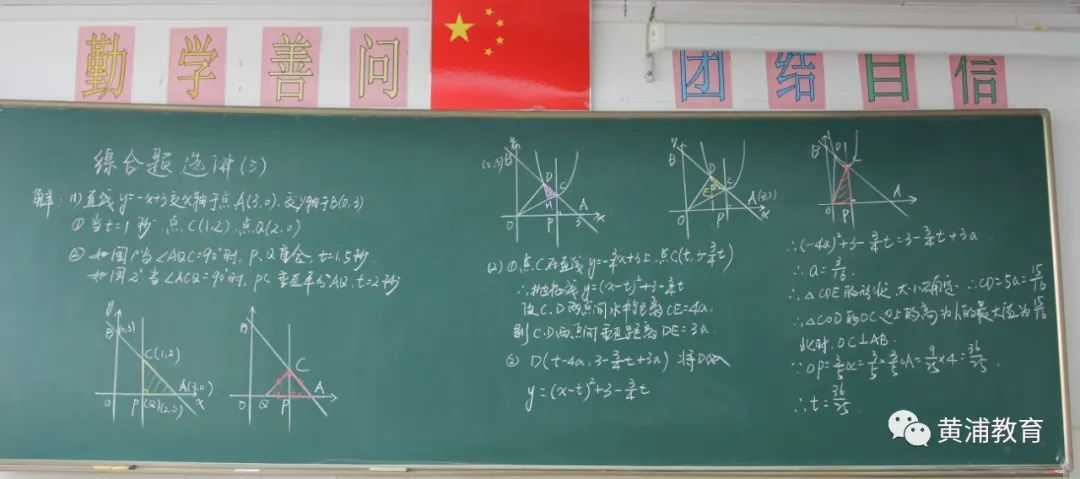 勤学善问
团结自信
综合题选讲(二)
解: (1)直线 y=-x+3交x轴于点A(3,0),交y轴于B(0,3)
①当t=1秒,点C(1,2),点Q(2,0)
②如图1当∠AQC=90°时,P、Q重合,t=1.5秒
如图2当∠ACQ=90°时,PC垂直平分AQ,t=2秒
y
B
(0,3)
C(1,2)
A(3,0)
O
P
(Q)(2,0)
x
B
C
O
Q
P
A
B
D
C
H
O
P
3
x
y
B
D
C
E
O
P
x
B
D
C
O
P
A
(2)①点C在直线 y=-¾x+3上,点C(t,3-¾t)
∴抛物线 y=(x-t)²+3-¾t
设C、D两点间水平距离CE=4a,
则C、D两点间垂直距离DE=3a.
② D(t-4a,3-¾t+3a) 将D代入
y=(x-t)²+3-¾t
∴(-4a)²+3-¾t=3-¾t+3a
∴a=3/16
∴△CDE的形状、大小确定 ∴CD=5a=15/16
此时,OC⊥AB.
∵OP=3/5OC=3/5×3/5OA=9/25×4=36/25
∴t=36/25
黄浦教育